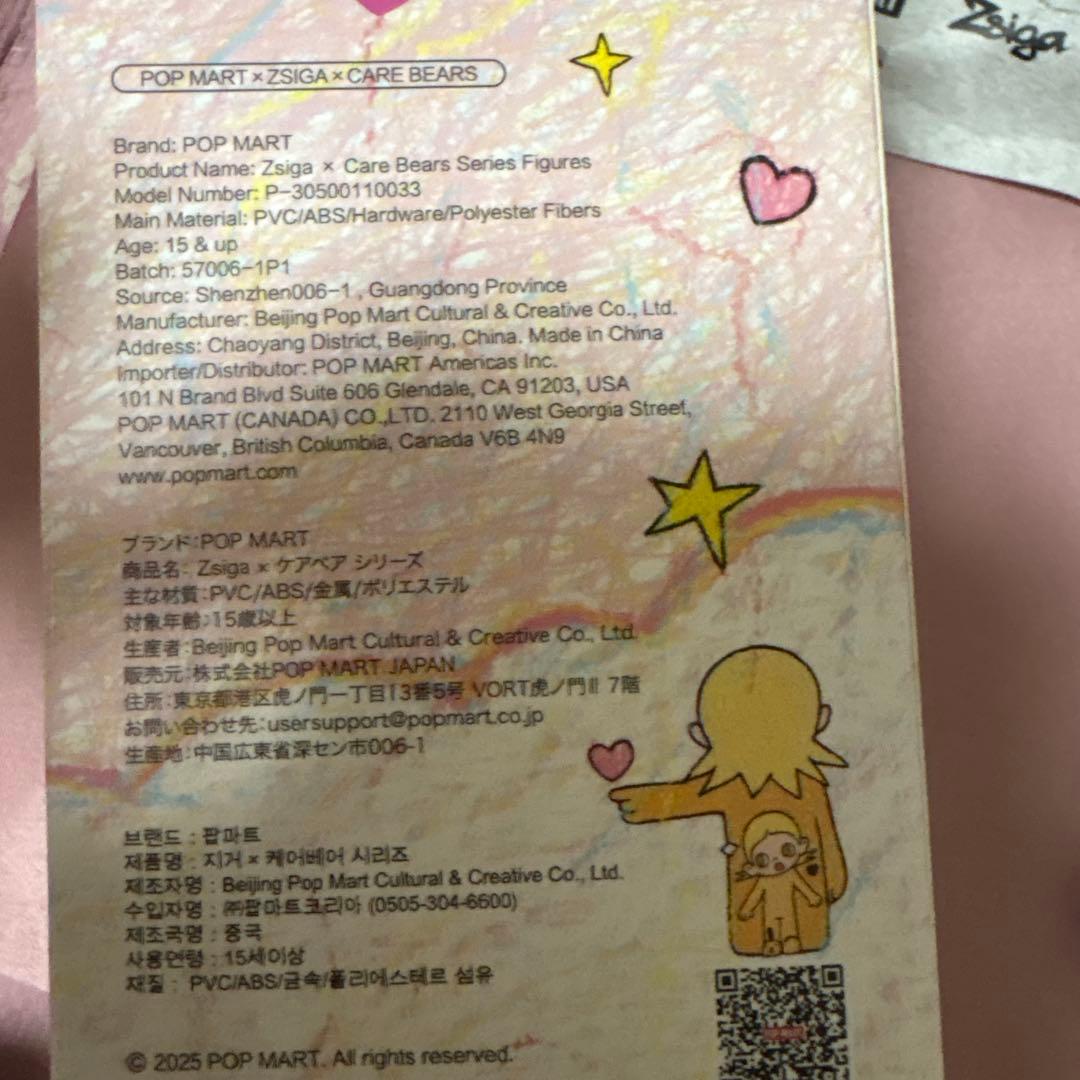 Zsiga
POP MART × ZSIGA × CARE BEARS
Brand: POP MART
Product Name: Zsiga × Care Bears Series Figures
Model Number: P-30500110033
Main Material: PVC/ABS/Hardware/Polyester Fibers
Age: 15 & up
Batch: 57006-1P1
Source: Shenzhen006-1 , Guangdong Province
Manufacturer: Beijing Pop Mart Cultural & Creative Co., Ltd.
Address: Chaoyang District, Beijing, China. Made in China
Importer/Distributor: POP MART Americas Inc.
101 N Brand Blvd Suite 606 Glendale, CA 91203, USA
POP MART (CANADA) CO.,LTD. 2110 West Georgia Street,
Vancouver, British Columbia, Canada V6B 4N9
www.popmart.com
ブランド:POP MART
商品名: Zsiga × ケアベア シリーズ
主な材質:PVC/ABS/金属/ポリエステル
対象年齢:15歳以上
生産者:Beijing Pop Mart Cultural & Creative Co., Ltd.
販売元:株式会社POP MART JAPAN
住所:東京都港区虎ノ門一丁目13番5号 VORT虎ノ門Ⅱ 7階
お問い合わせ先:usersupport@popmart.co.jp
生産地:中国広東省深セン市006-1
브랜드 : 팝마트
제품명 : 지거 × 케어베어 시리즈
제조자명 : Beijing Pop Mart Cultural & Creative Co., Ltd.
수입자명 : ㈜팝마트코리아 (0505-304-6600)
제조국명 : 중국
사용연령 : 15세이상
재질 : PVC/ABS/금속/폴리에스테르 섬유
© 2025 POP MART. All rights reserved.
POP MART